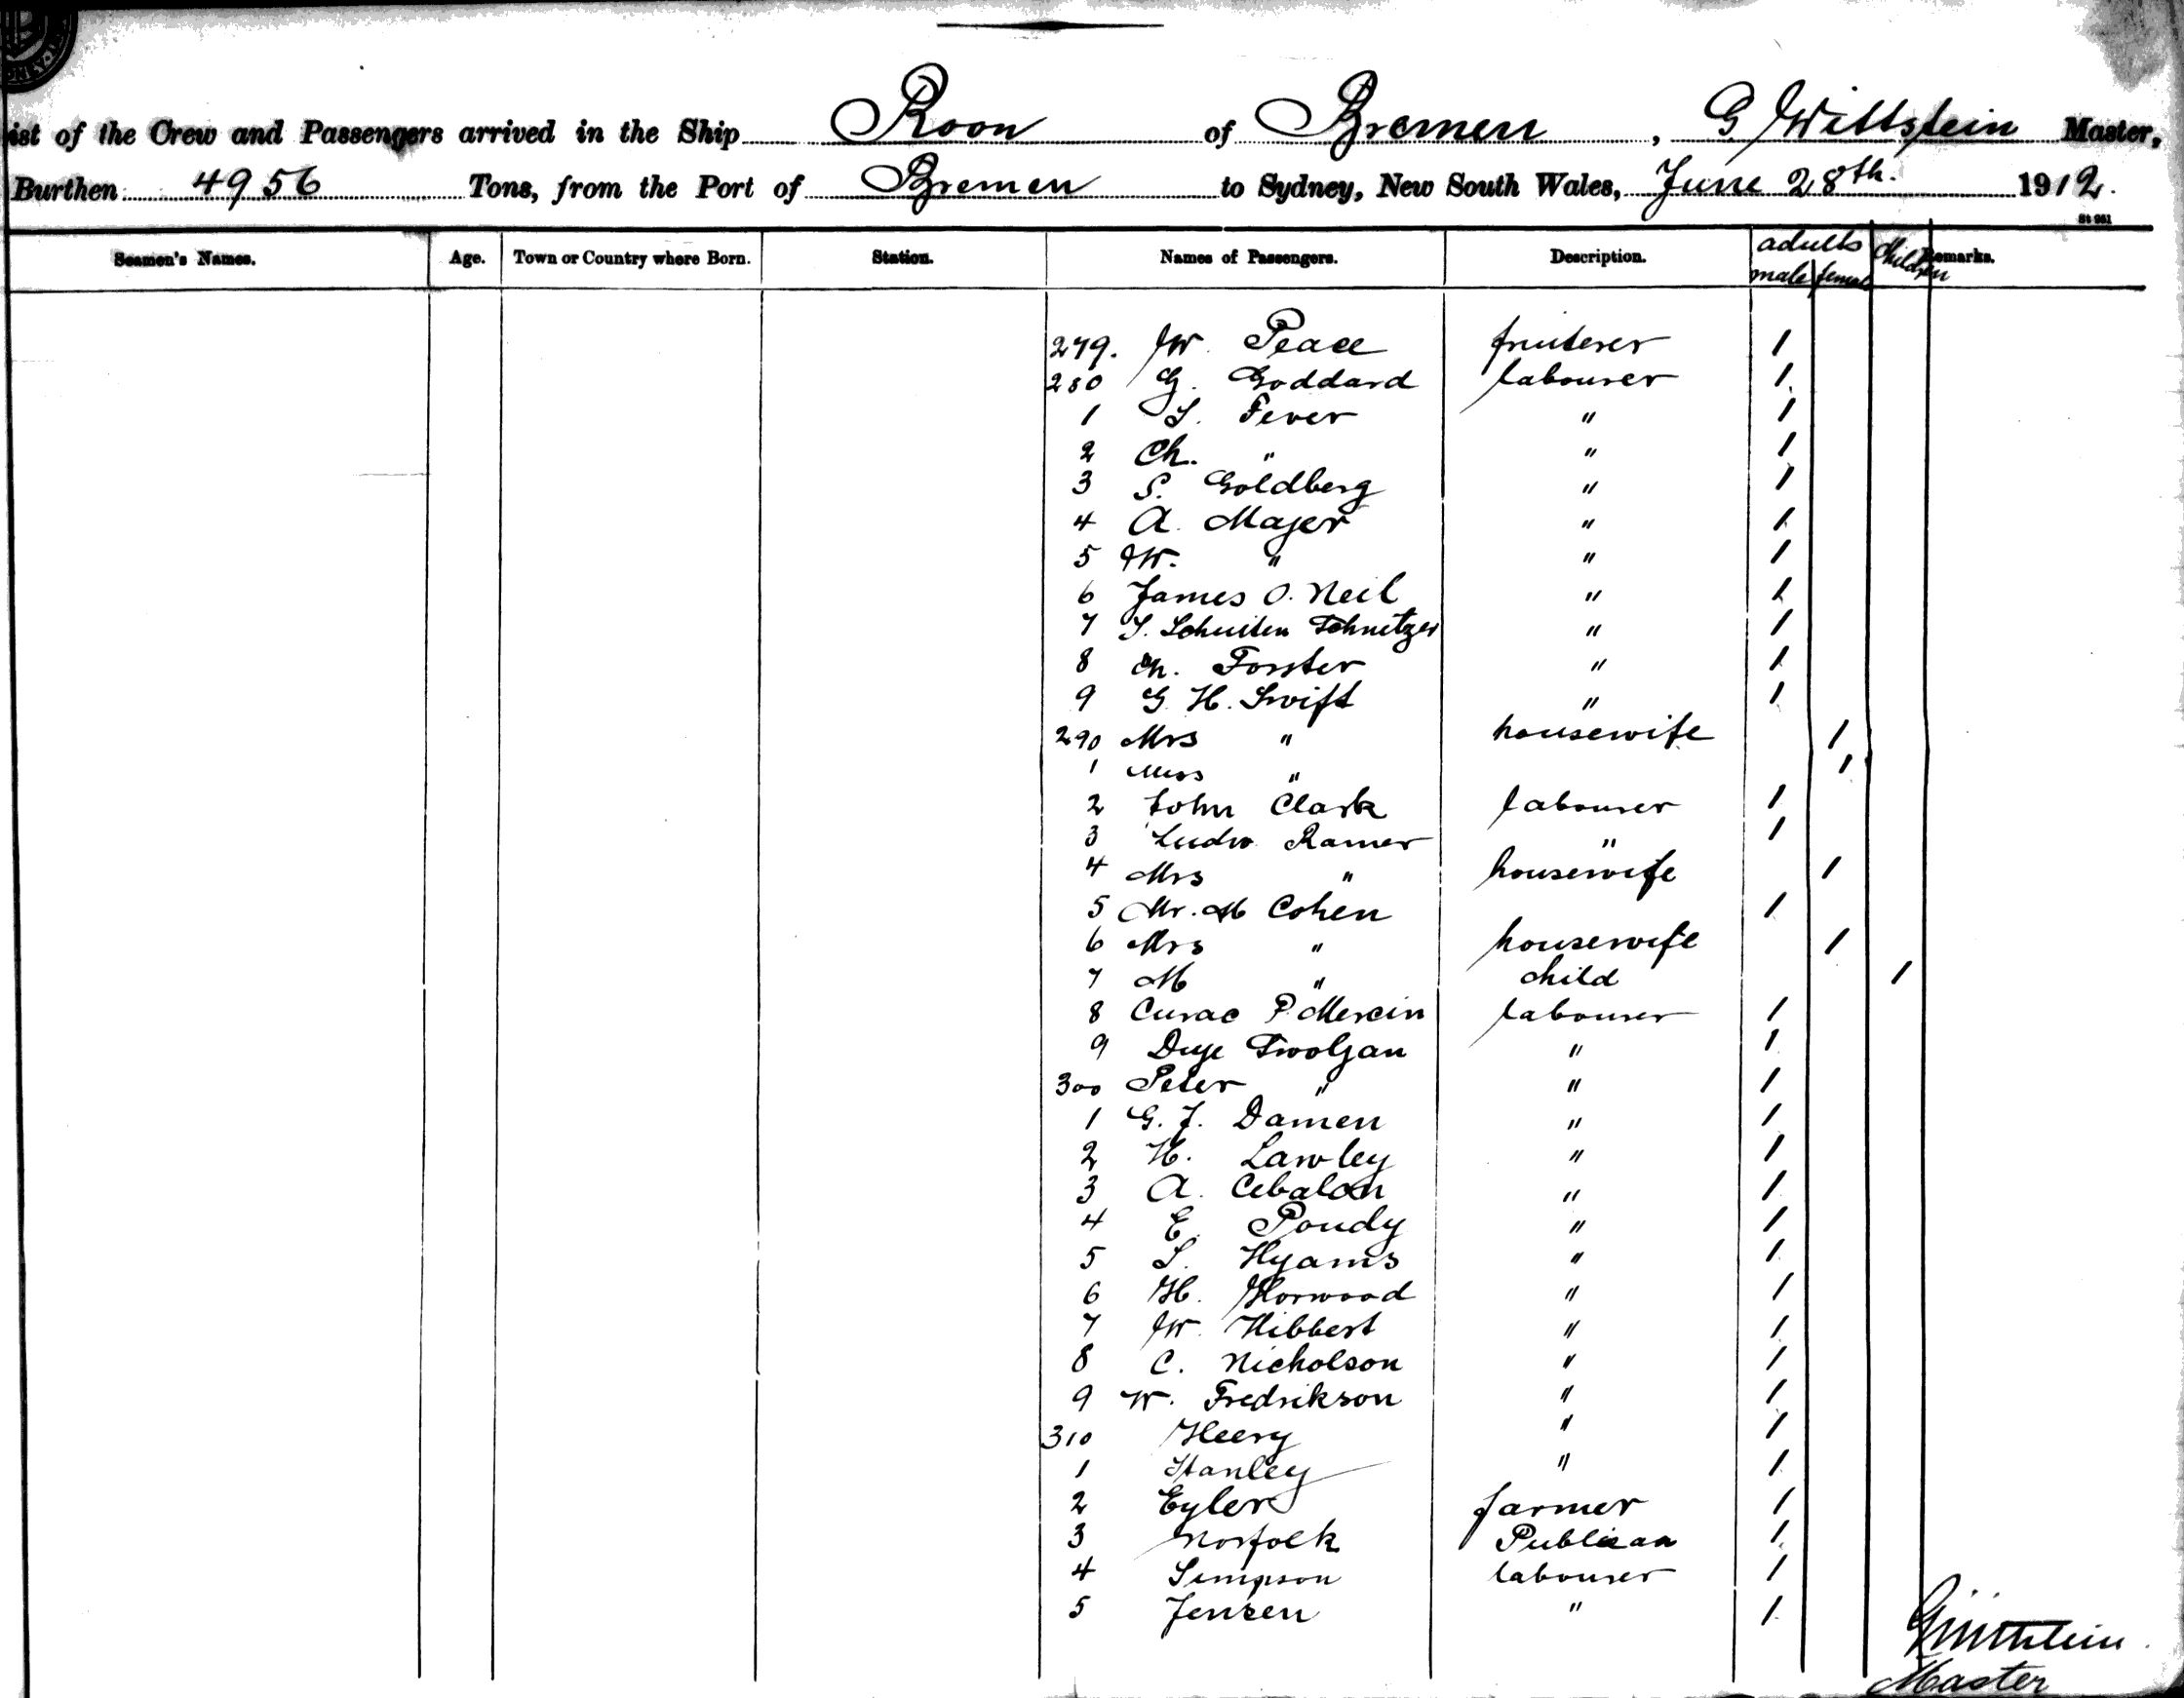 ist of the Crew and Passengers arrived in the Ship Roon of Bremen, G Wittstein Master,
Burthen 4956 Tons, from the Port of Bremen to Sydney, New South Wales, June 28th. 1912.
St 951
Seamen's Names. Age. Town or Country where Born. Station. Names of Passengers. Description. adults male female Children Remarks.
279. W. Peace fruiterer 1
280 G. Goddard labourer 1
1 S. Fever " 1
2 Ch. " " 1
3 S. Goldberg " 1
4 A. Mayer " 1
5 W. " " 1
6 James O. Neil " 1
7 " 1
8 Ch. Forster " 1
9 G. H. Swift " 1
290 Mrs " housewife 1
1 Miss " 1
2 John Clark labourer 1
3 Ludw Ramer " 1
4 Mrs " housewife 1
5 Mr. M Cohen 1
6 Mrs " housewife 1
7 M " child 1
8 Curac P. Mercin labourer 1
9 Duje " 1
300 Peter " " 1
1 G. J. Damen " 1
2 H. Lawley " 1
3 A. Cebalon " 1
4 E. Poudy " 1
5 S. Hyams " 1
6 H. Horwood " 1
7 W. Hibbert " 1
8 C. Nicholson " 1
9 W. Fredrikson " 1
310 Heery " 1
1 Stanley " 1
2 Eyler farmer 1
3 Norfolk Publican 1
4 Simpson labourer 1
5 Jensen " 1
G Wittstein
Master